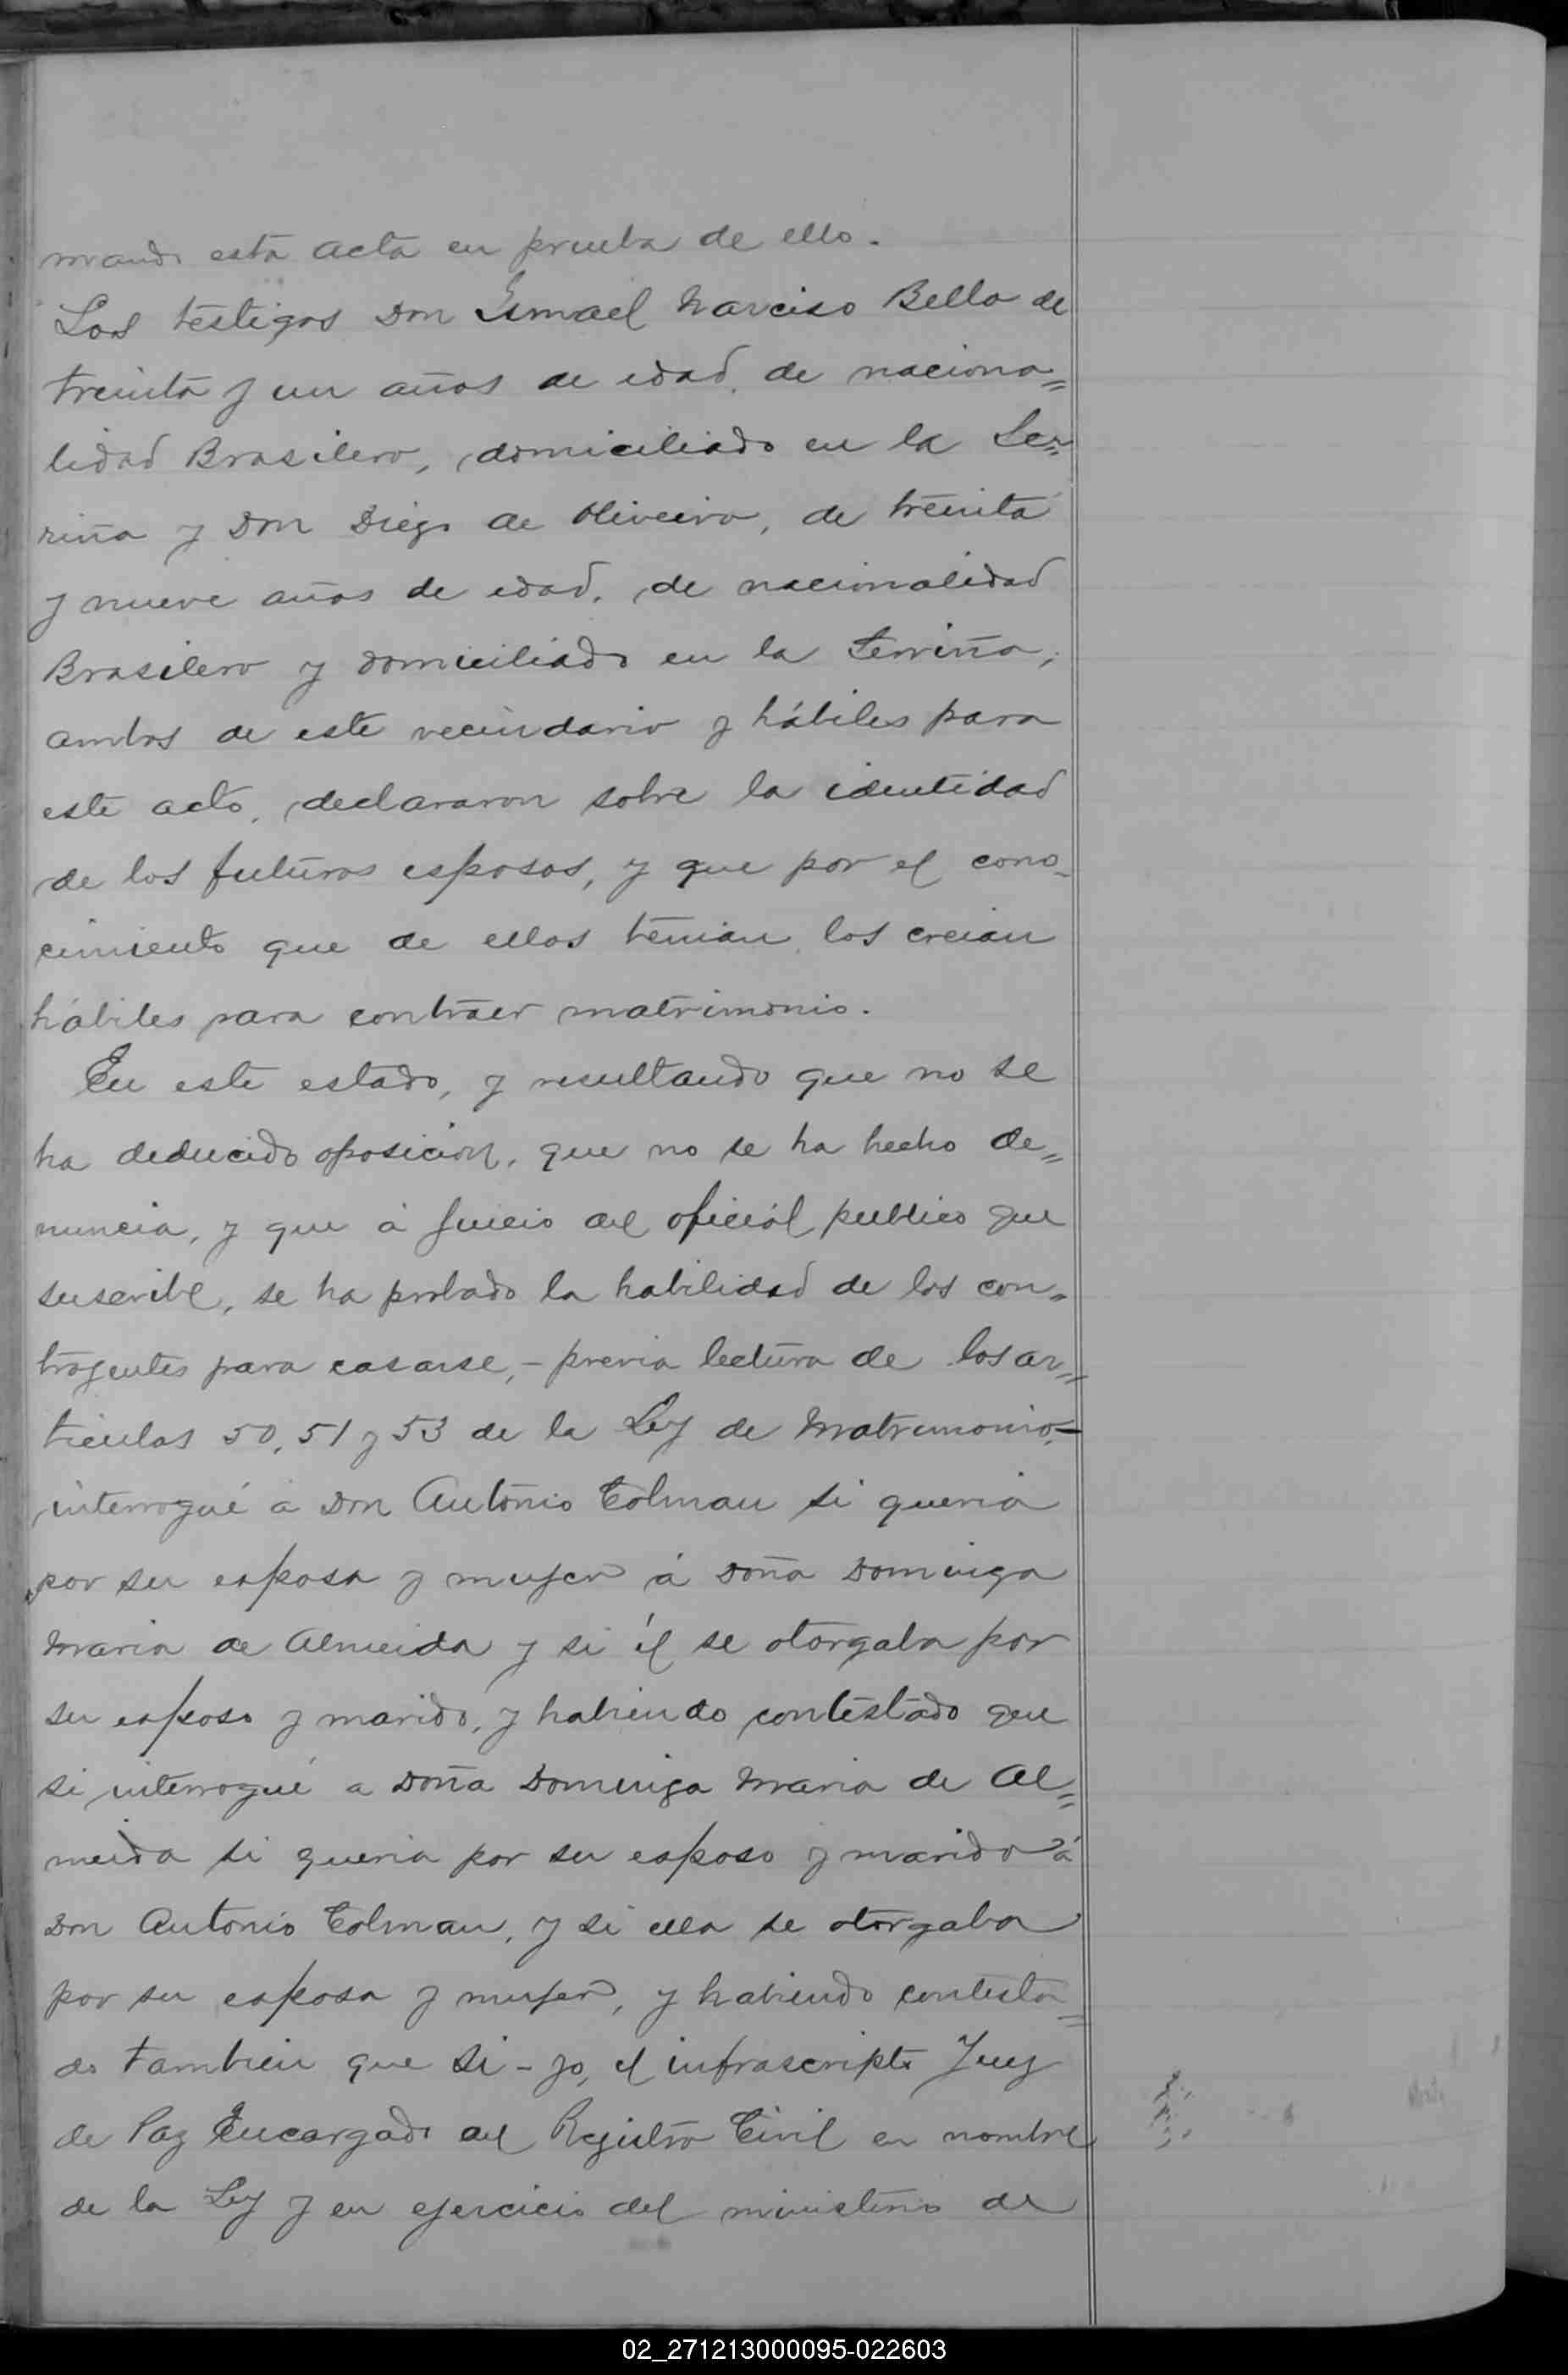 mando esta acta en prueba de ello.
Los testigos Don Ismael Narciso Bello de
treinta y un años de edad, de naciona=
lidad Brasilero, domiciliado en la
y Don Diego de Oliveira, de treinta
y nueve años de edad, de nacionalidad
Brasilero y domiciliado en la
ambos de este vecindario y hábiles para
este acto, declararon sobre la identidad
de los futuros esposos, y que por el cono-
cimiento que de ellos tenian, los creian
hábiles para contraer matrimonio.
En este estado, y resultando que no se
ha deducido oposición, que no se ha hecho de=
nuncia, y que á juicio del oficiál publico que
suscribe, se ha probado la habilidad de los con=
trayentes para casarse, - previa lectura de los ar=
ticulos 50, 51 y 53 de la Ley de Matrimonio, -
interrogué a Don Antonio Colman si queria
por su esposa y mujer á Doña Dominga
Maria de Almeida y si él se otorgaba por
su esposo y marido, y habiendo contestado que
si interrogué a Doña Dominga Maria de Al=
meida si queria por su esposo y marido á
Don Antonio Colman, y si ella se otorgaba
por su esposa y mujer, y habiendo contesta=
do tambien que si - yo, el infrascripto Juez
de Paz Encargado del Registro Civil en nombre
de la Ley y en ejercicio del ministerio de
02_271213000095-022603